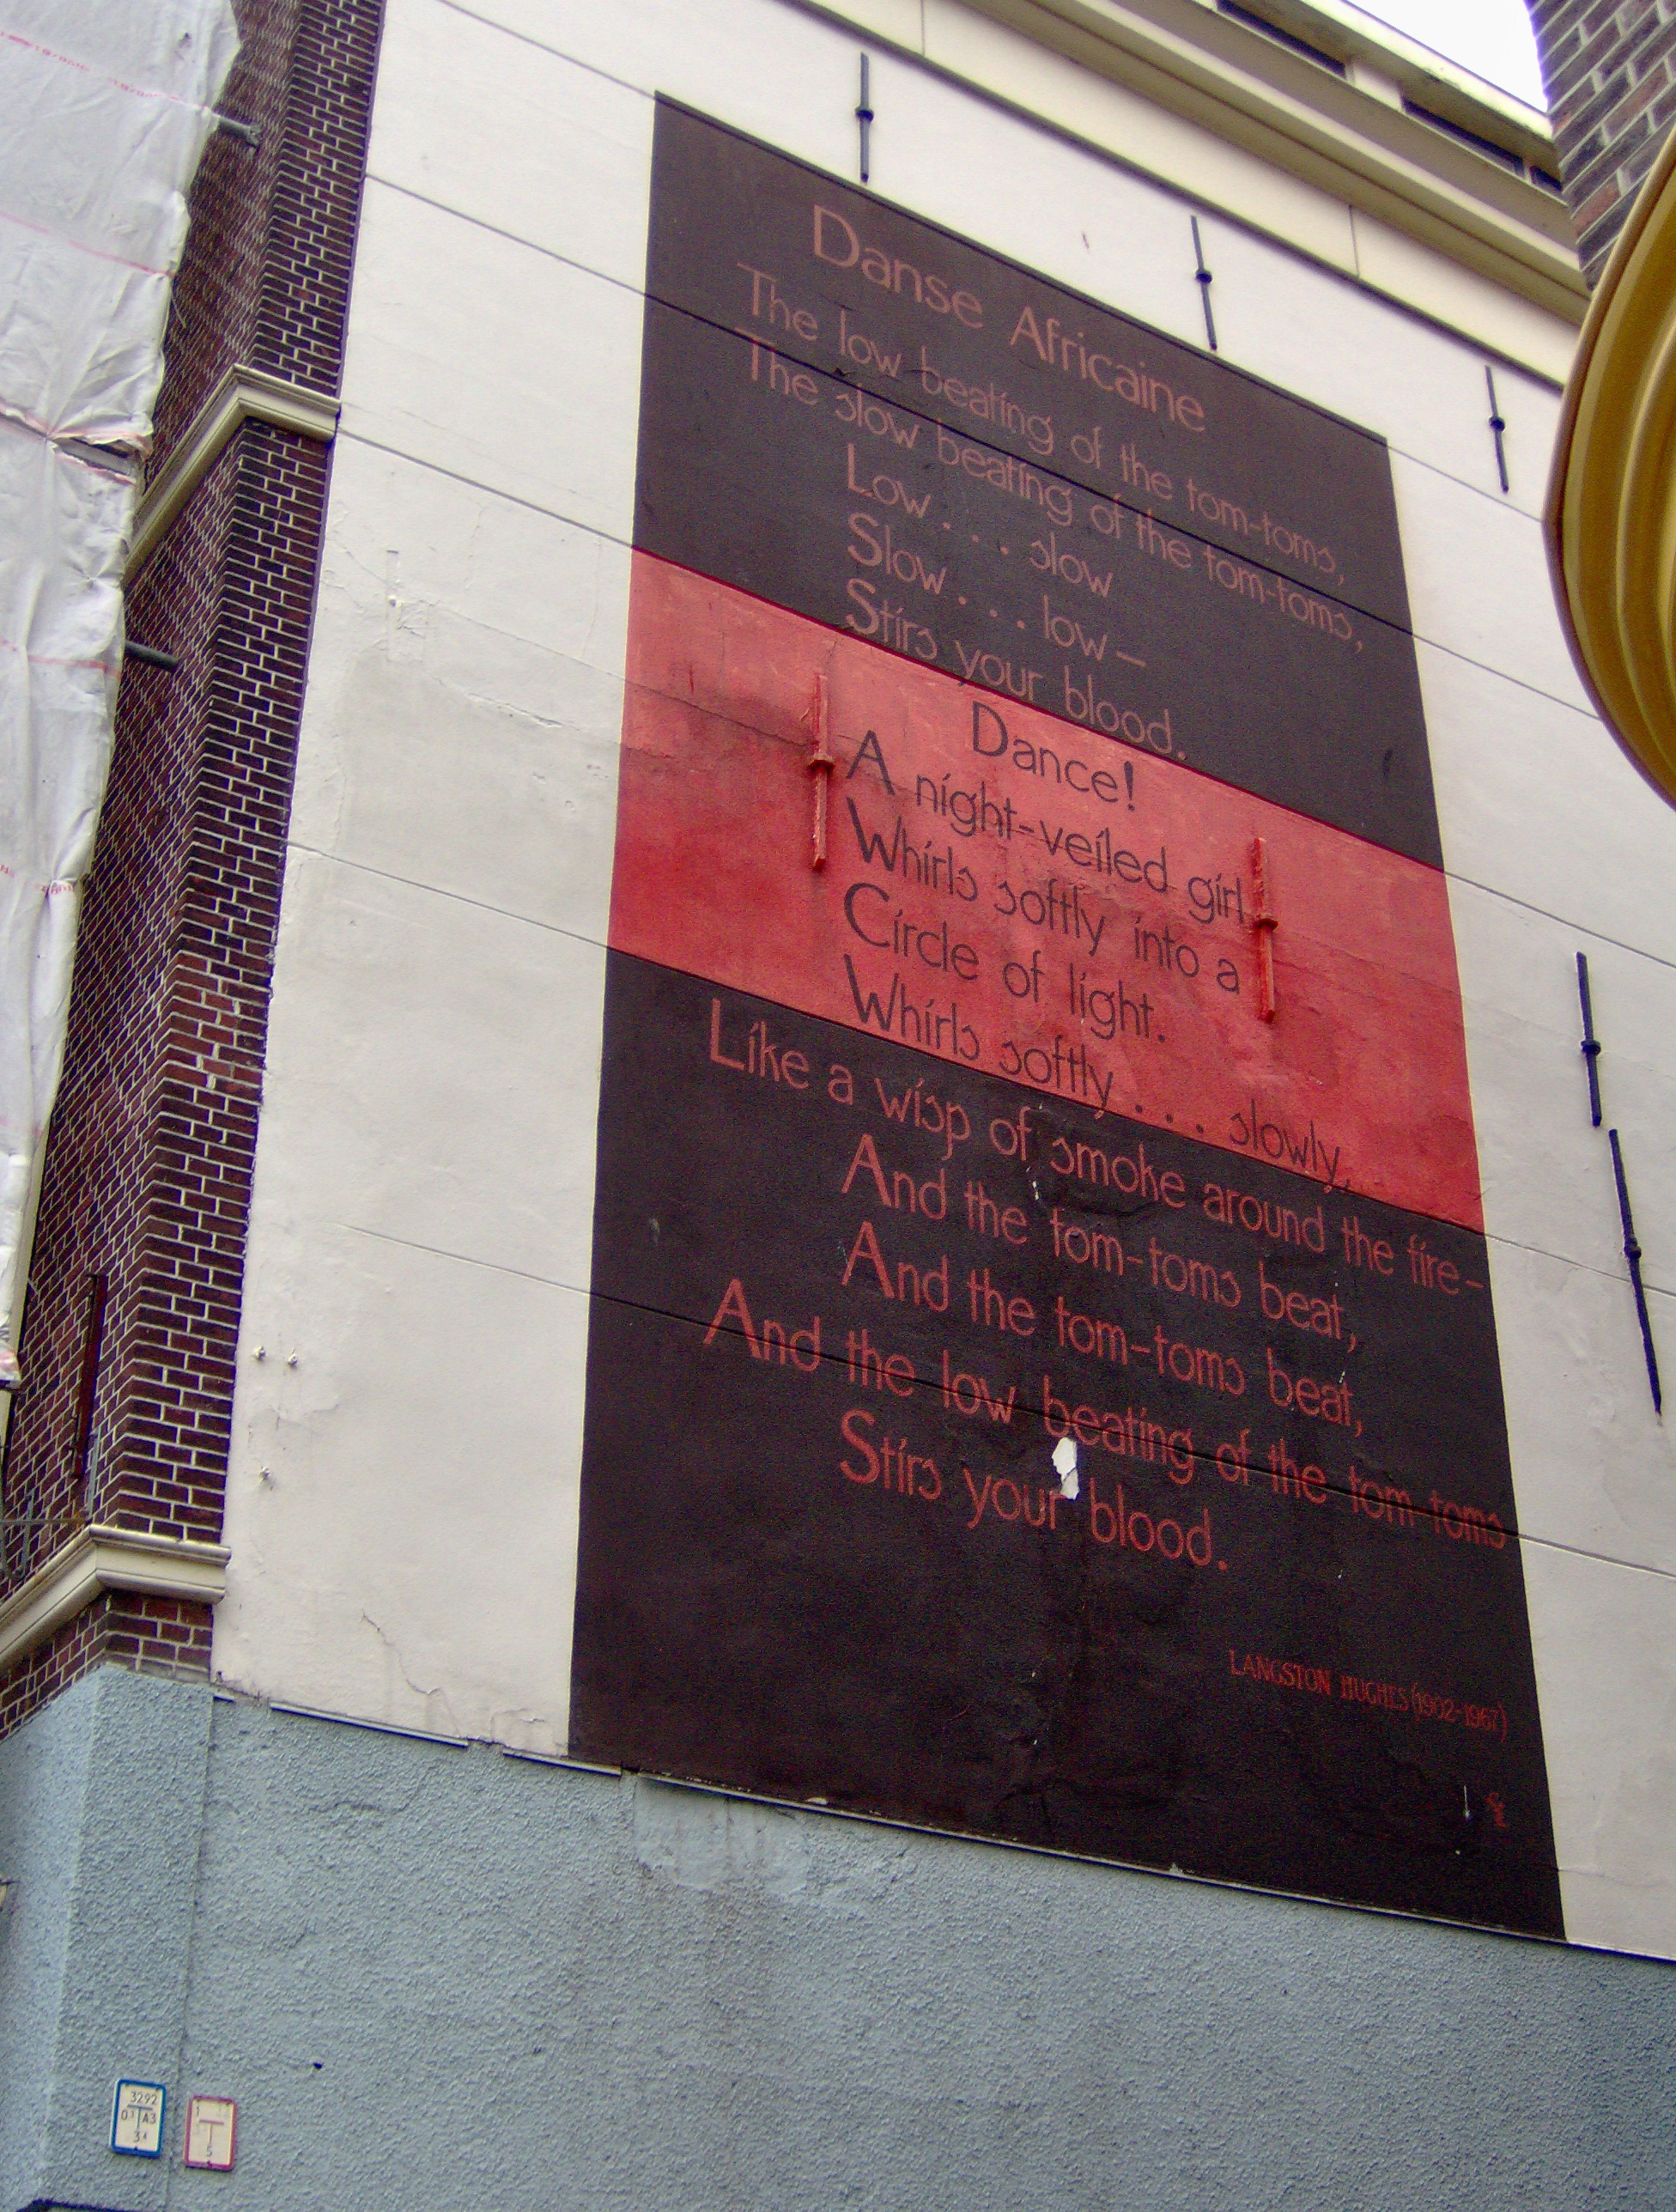 Danse Africaine
The low beating of the tom-toms,
The slow beating of the tom-toms,
Low . . . slow
Slow . . . low—
Stirs your blood.
Dance!
A night-veiled girl
Whirls softly into a
Circle of light.
Whirls softly . . . slowly,
Like a wisp of smoke around the fire—
And the tom-toms beat,
And the tom-toms beat,
And the low beating of the tom-toms
Stirs your blood.
LANGSTON HUGHES (1902-1967)
3292